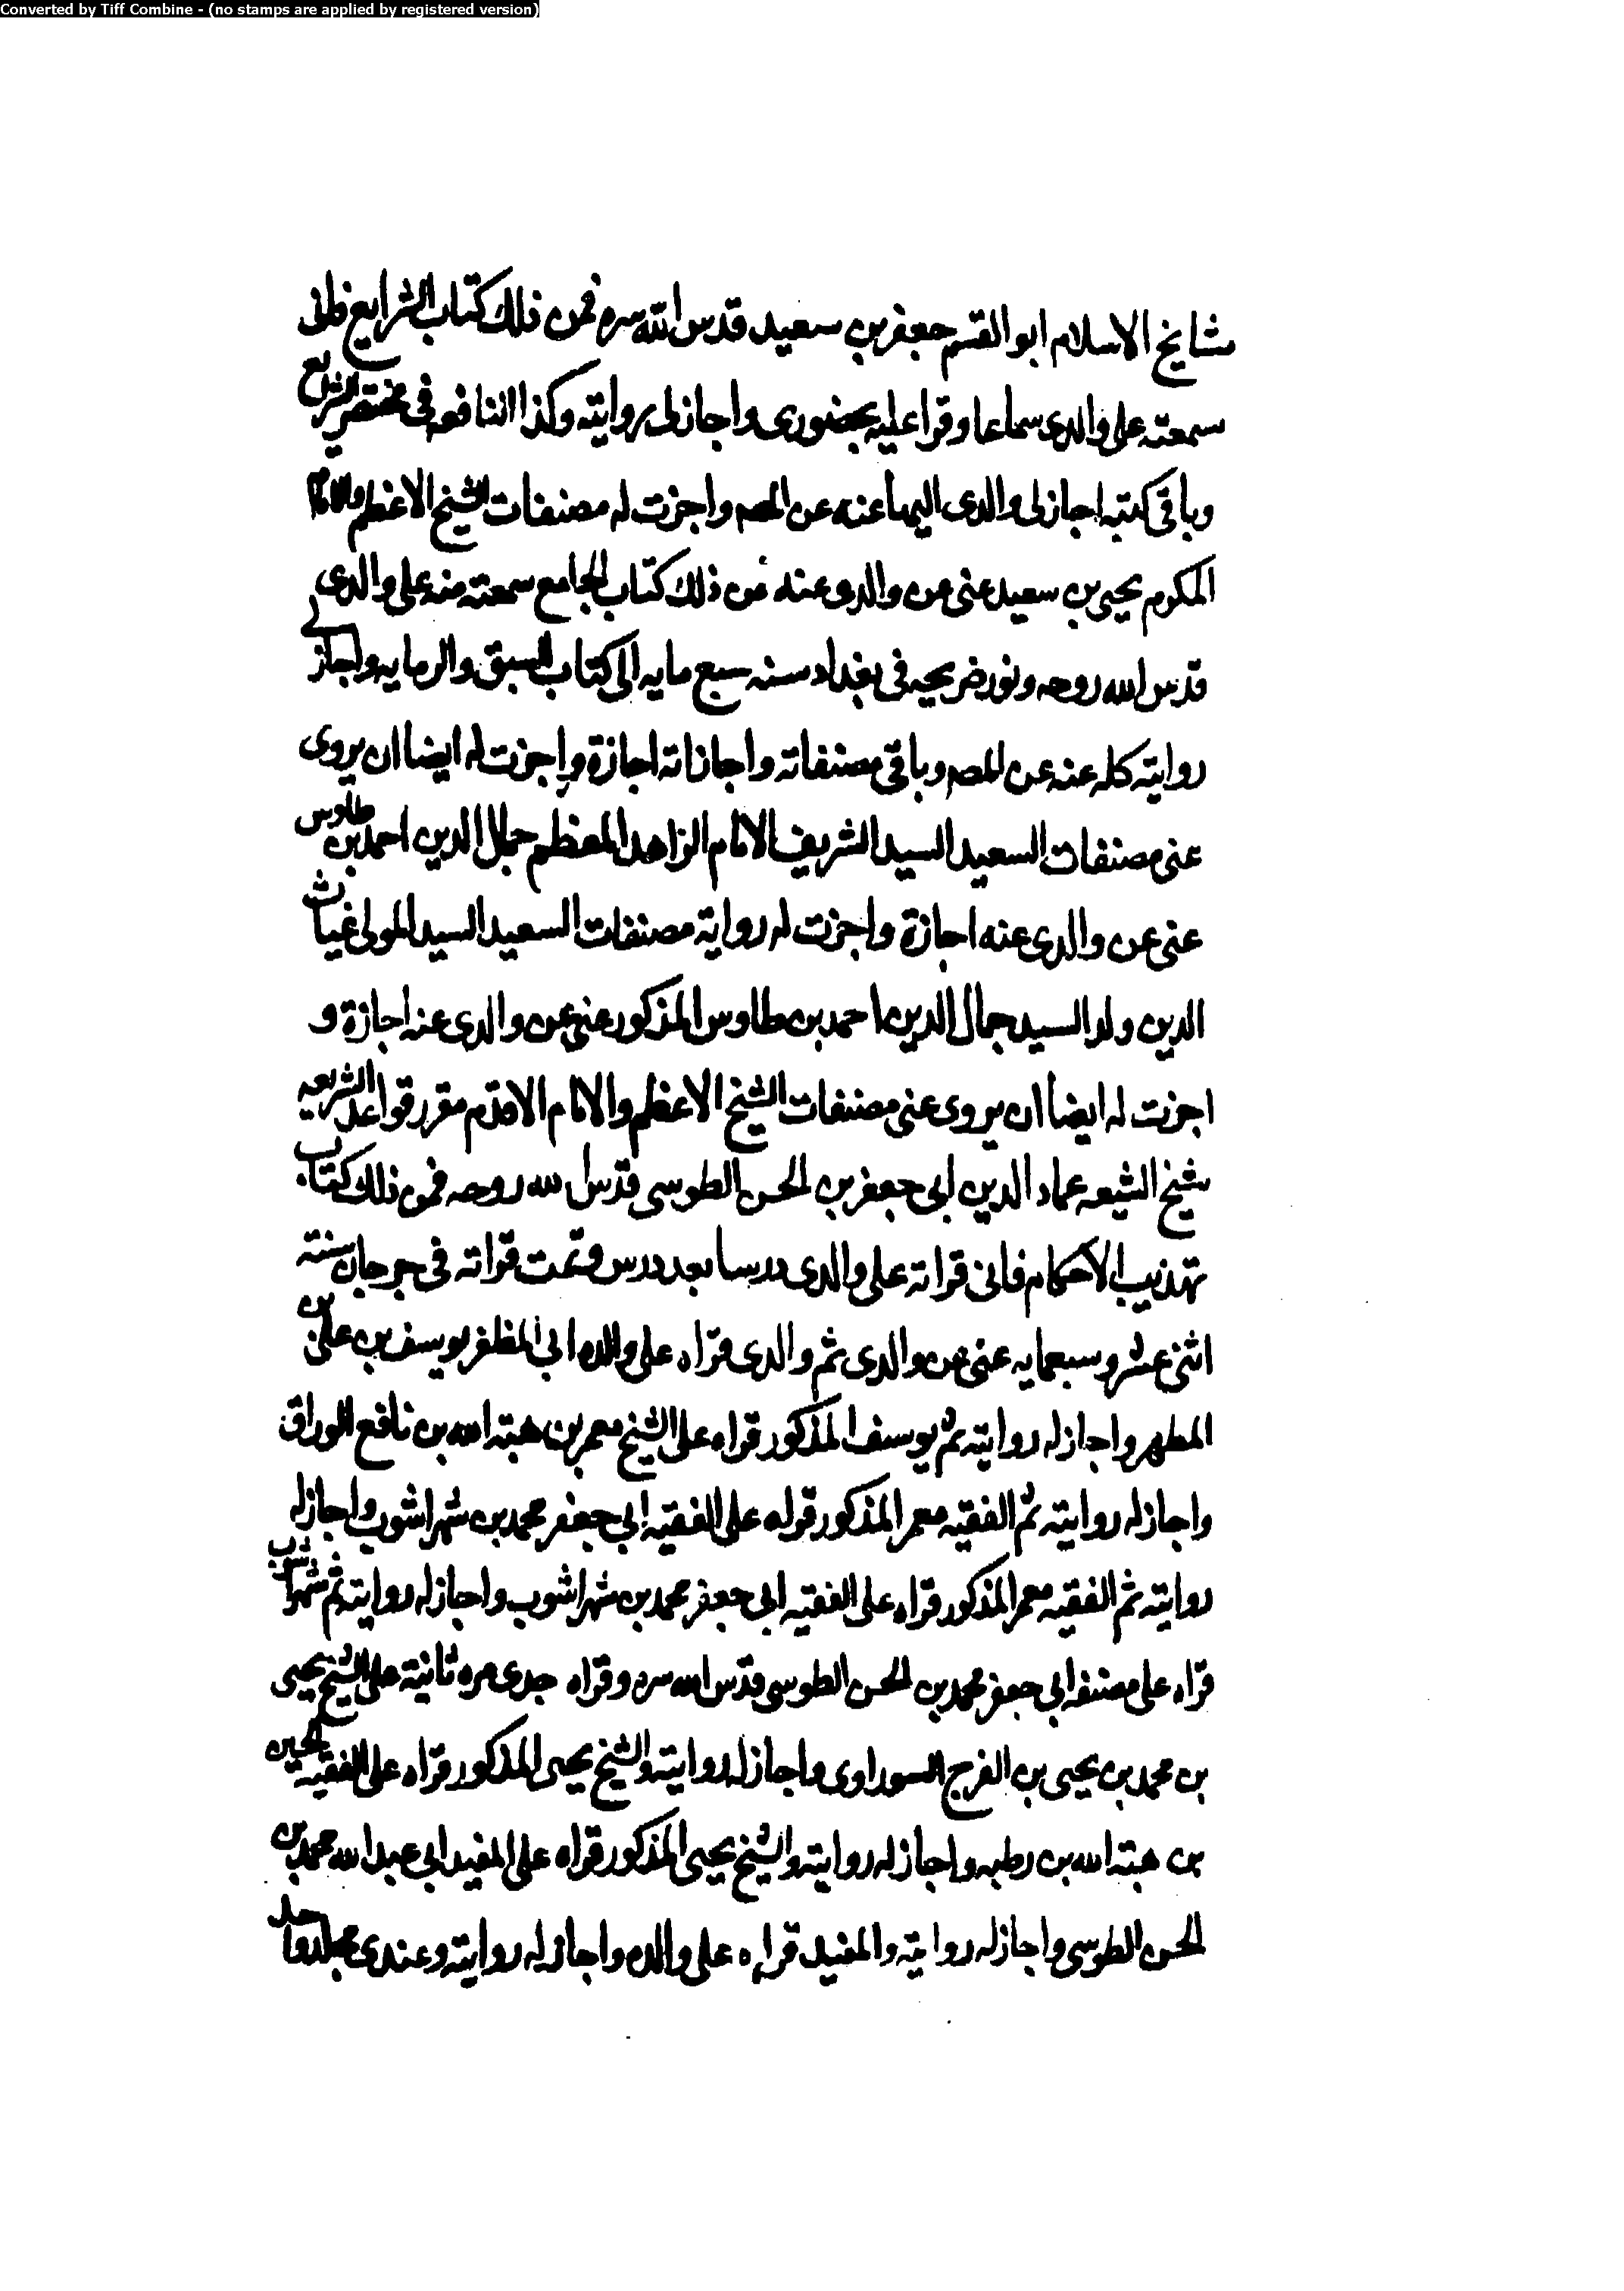 Converted by Tiff Combine - (no stamps are applied by registered version)
مشايخ الاسلام ابو القسم جعفر بن سعيد قدس الله سره فمن ذلك كتاب الشرايع فانى
سمعته على والدى سماعا وقرا عليه بحضورى واجاز لى روايته وكذا النافع فى مختصر الشرايع
وباقى كتبه اجاز لى والدى اليها عنه عن المصم واجزت له مصنفات الشيخ الاعظم والامام
المكرم يحيى بن سعيد عنى عن والدى عنه فمن ذلك كتاب الجامع سمعته منه على والدى
قدس الله روحه ونور ضريحه فى بغداد سنه سبع مايه الى كتاب السبق والرمايه واجاز لى
روايته كله عنه عن المصم وباقى مصنفاته واجازاته اجازة واجزت له ايضا ان يروى
عنى مصنفات السعيد السيد الشريف الامام الزاهد المعظم جمال الدين احمد بن طاوس
عنى عن والدى عنه اجازة واجزت له رواية مصنفات السعيد السيد المولى غياث
الدين ولد السيد جمال الدين احمد بن طاوس المذكور عنى عن والدى عنه اجازة و
اجزت له ايضا ان يروى عنى مصنفات الشيخ الاعظم والامام الاقدم مقرر قواعد الشريعه
شيخ الشيعه عماد الدين ابى جعفر بن الحسن الطوسى قدس الله روحه فمن ذلك كتاب
تهذيب الاحكام فانى قراته على والدى درسا بعد درس وتمت قراته فى جرجان سنة
اثنى عشر وسبعمايه عنى عن والدى ثم والدى قراه على والده ابى المظفر يوسف بن على بن
المطهر واجاز له روايته ثم يوسف المذكور قراه على الشيخ معمر بن هبته الله بن نافع الوراق
واجاز له روايته ثم الفقيه معمر المذكور قراه على الفقيه ابى جعفر محمد بن شهراشوب واجاز له
روايته ثم الفقيه معمر المذكور قراه على الفقيه ابى جعفر محمد بن شهراشوب واجاز له روايته ثم شهراشوب
قراه على مصنفه ابى جعفر محمد بن الحسن الطوسى قدس الله سره وقراه جدى مره ثانية على الشيخ يحيى
بن محمد بن يحيى بن الفرج السوراوى واجاز له روايته والشيخ يحيى المذكور قراه على الفقيه الحسين
بن هبته الله بن رطبه واجاز له روايته والشيخ يحيى المذكور قراه على المفيد ابى عبد الله محمد بن
الحسن الطوسى واجاز له روايته والمفيد قراه على والده واجاز له روايته وعندى مجلد واحد